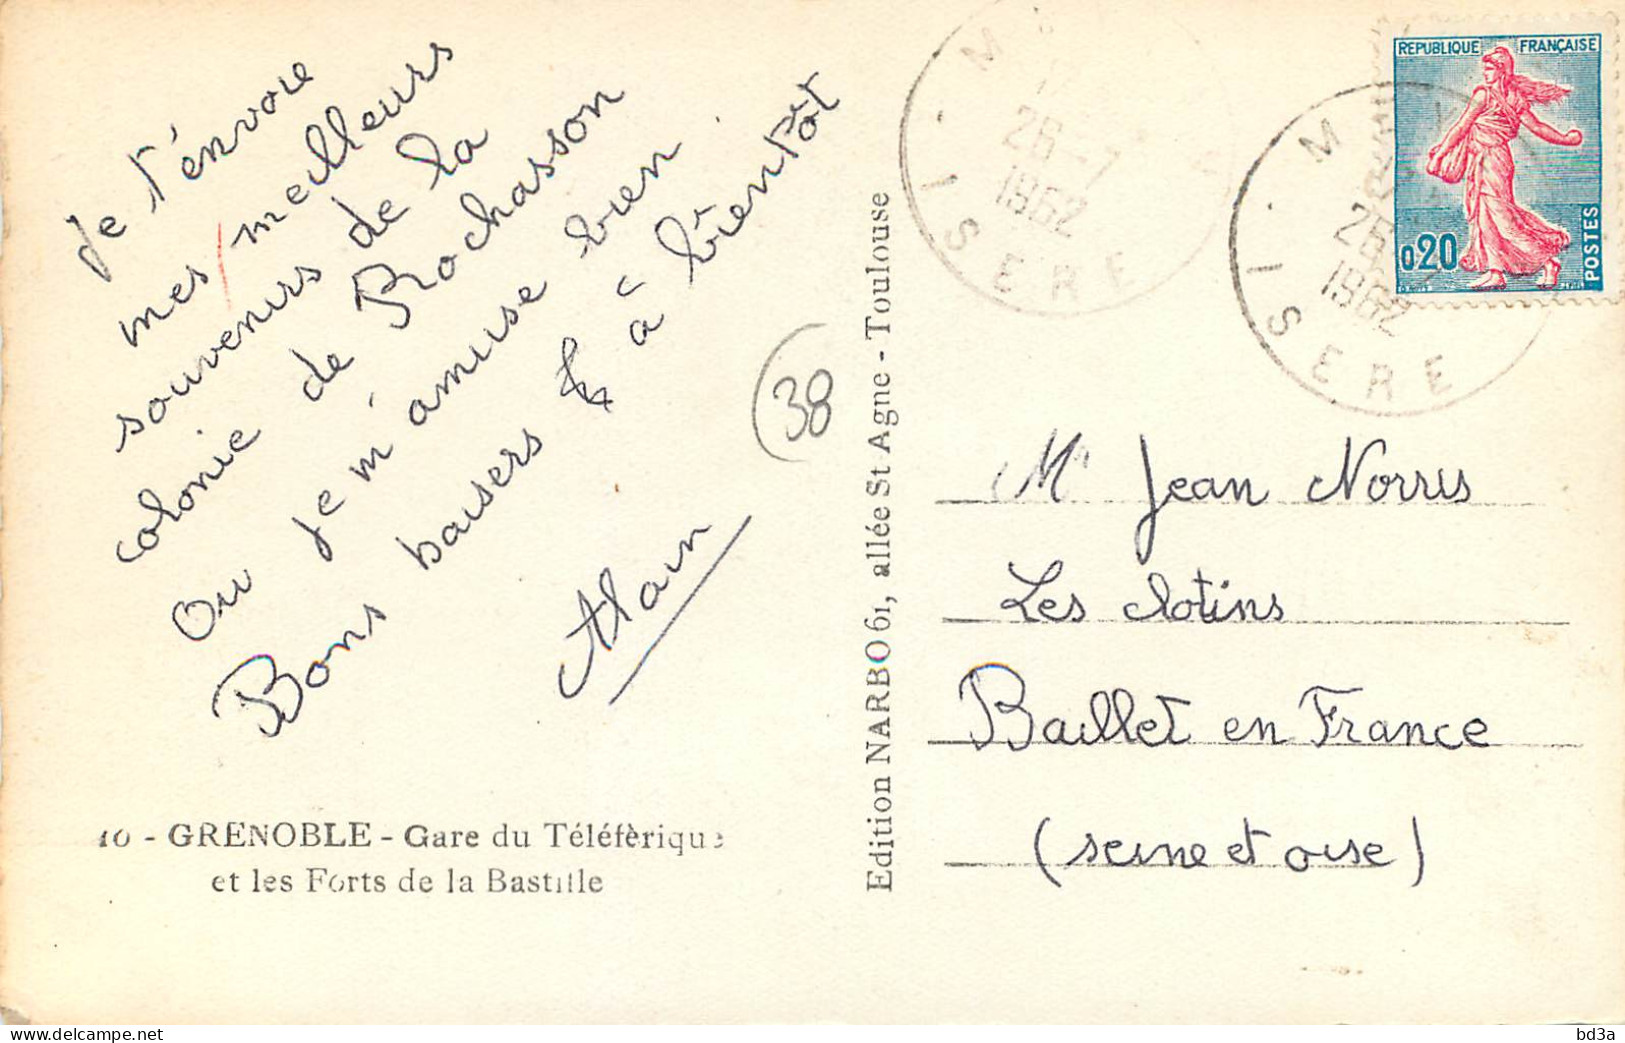 Je t'envoie
mes meilleurs
souvenirs de la
colonie de Rochasson
Ou je m'amuse bien
Bons baisers & à bientôt
Alain
10 - GRENOBLE - Gare du Téléfèrique
et les Forts de la Bastille
Edition NARBO 61, allée St Agne - Toulouse
38
26-7
1962
ISERE
REPUBLIQUE FRANÇAISE
0,20
POSTES
26
1962
ISERE
Mr Jean Norris
Les clotins
Baillet en France
(seine et oise)
delcampe.net
bd3a